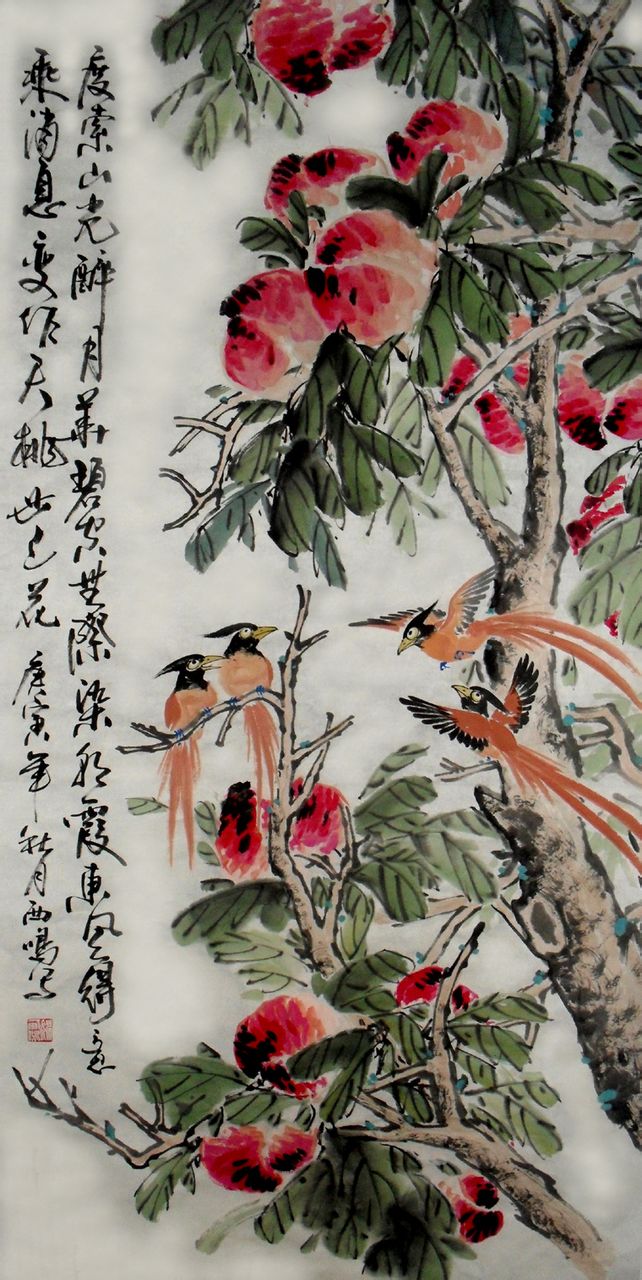 度索山光醉月華碧空無際染朝霞東風得意
乘消息變作夭桃世上花 庚寅年秋月西鳴写